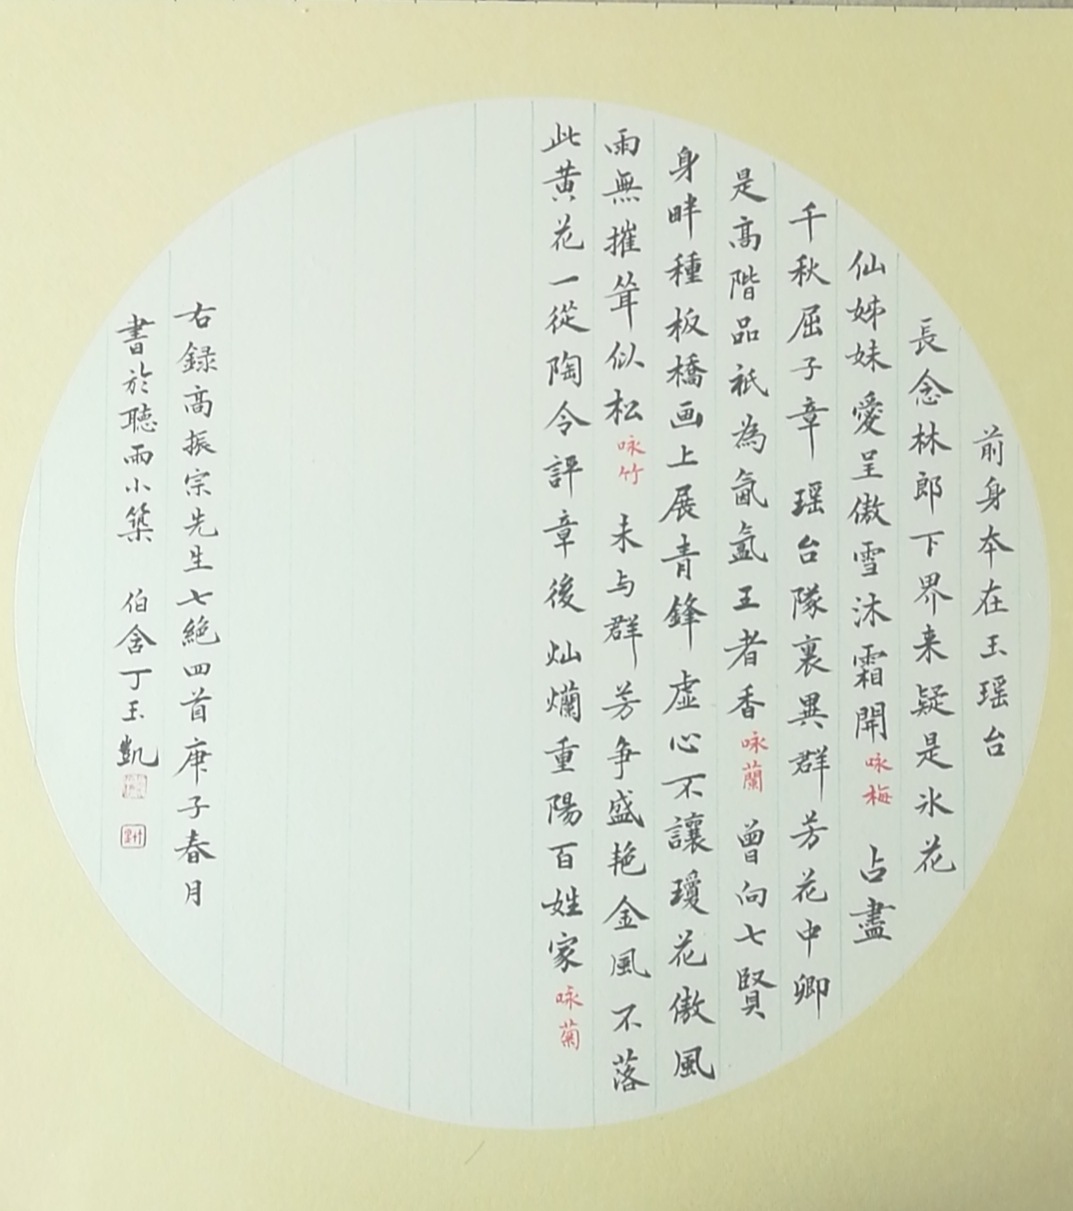 前身本在玉瑶台
長念林郎下界来疑是氷花
仙姊妹愛呈傲雪沐霜開咏梅 占盡
千秋屈子章瑶台隊裏異群芳花中卿
是髙階品祇為氤氲王者香咏蘭 曾向七賢
身畔種板橋画上展青鋒虚心不讓瓊花傲風
雨無摧耸似松咏竹 未与群芳争盛艳金風不落
此黄花一從陶令評章後灿爛重陽百姓家咏菊
右録髙振宗先生七絶四首庚子春月
書於聽雨小築 伯含丁玉凱